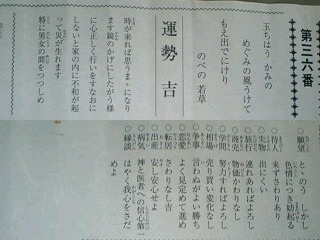 第三六番
玉ちはうかみの
めぐみの風うけて
もえ出でにけり
のべの若草
運勢 吉
時が来れば思うまゝになり
ます鏡のかげにしたがう様
に心正しく行いをすなおに
しないと家の内に不和が起
って災が生れます
特に男女の間をつつしめ
○願望 とゝのう しかし
色情につき妨起る
○待人 来ずさわりあり
○失物 出にくい
○旅行 連れあればよろし
○商売 物価かわりなし
○学問 努力すればよろし
○相場 売り買い変化なし
○争事 言わぬがよし勝ち
○恋愛 よく見定めて進め
○転居 さわりなし吉
○出産 安し安心せよ
○病気 神と医者への信心第一
○縁談 はやく我心をさだ
めよ